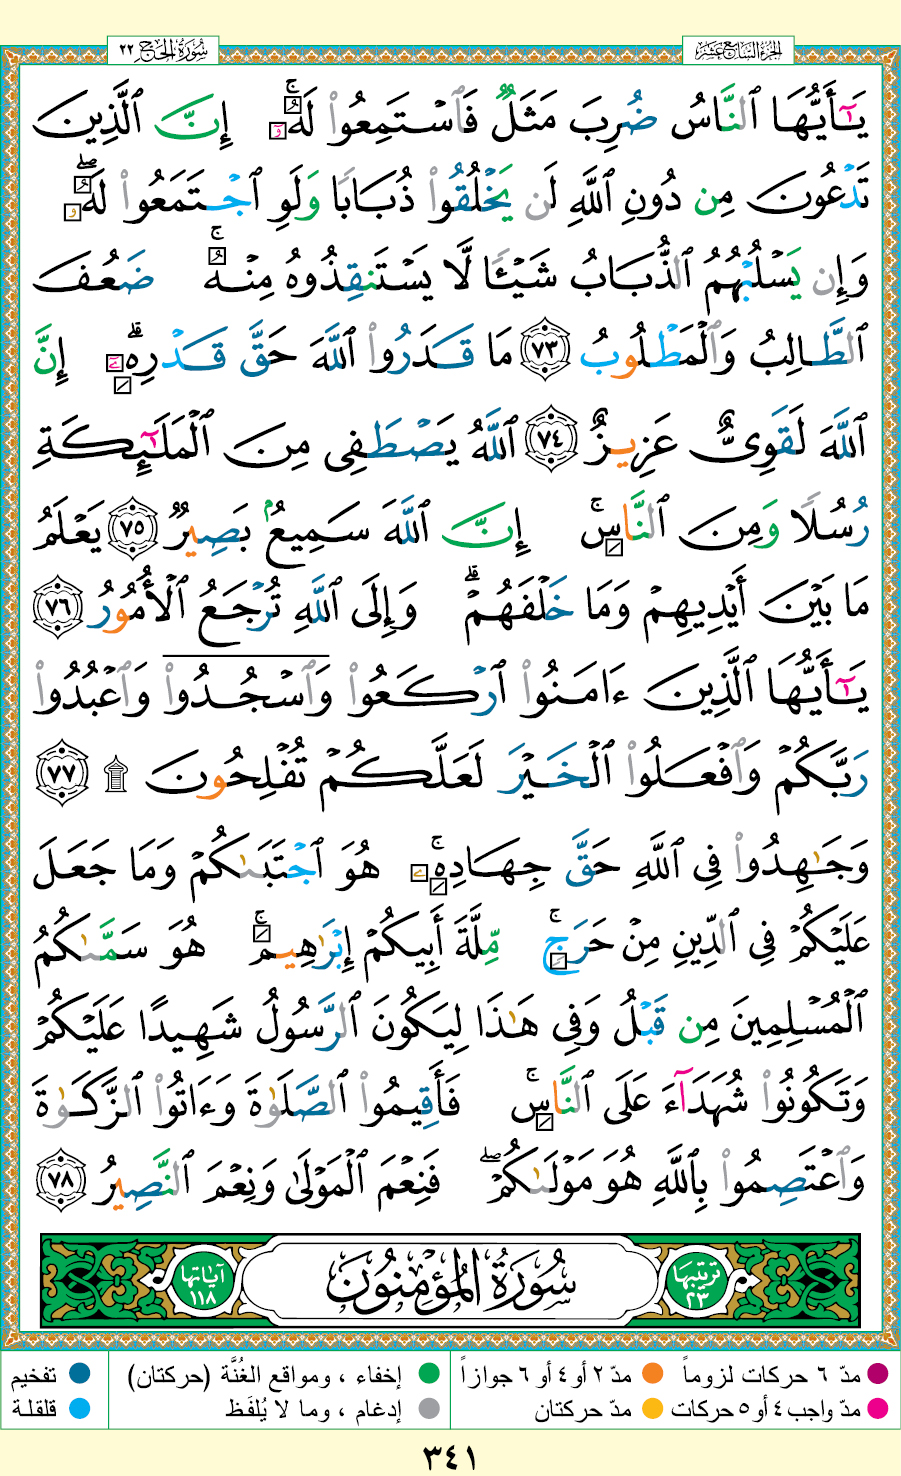 سُورَةُ الحَجِّ ٢٢
الجُزْءُ السَّابِعَ عَشَرَ
يَـٰٓأَيُّهَا ٱلنَّاسُ ضُرِبَ مَثَلٌ فَٱسْتَمِعُوا۟ لَهُۥٓ ۚ إِنَّ ٱلَّذِينَ
تَدْعُونَ مِن دُونِ ٱللَّهِ لَن يَخْلُقُوا۟ ذُبَابًا وَلَوِ ٱجْتَمَعُوا۟ لَهُۥ ۖ
وَإِن يَسْلُبْهُمُ ٱلذُّبَابُ شَيْـًٔا لَّا يَسْتَنقِذُوهُ مِنْهُ ۚ ضَعُفَ
ٱلطَّالِبُ وَٱلْمَطْلُوبُ ﴿٧٣﴾ مَا قَدَرُوا۟ ٱللَّهَ حَقَّ قَدْرِهِۦٓ ۗ إِنَّ
ٱللَّهَ لَقَوِىٌّ عَزِيزٌ ﴿٧٤﴾ ٱللَّهُ يَصْطَفِى مِنَ ٱلْمَلَـٰٓئِكَةِ
رُسُلًا وَمِنَ ٱلنَّاسِ ۚ إِنَّ ٱللَّهَ سَمِيعٌۢ بَصِيرٌ ﴿٧٥﴾ يَعْلَمُ
مَا بَيْنَ أَيْدِيهِمْ وَمَا خَلْفَهُمْ ۗ وَإِلَى ٱللَّهِ تُرْجَعُ ٱلْأُمُورُ ﴿٧٦﴾
يَـٰٓأَيُّهَا ٱلَّذِينَ ءَامَنُوا۟ ٱرْكَعُوا۟ وَٱسْجُدُوا۟ وَٱعْبُدُوا۟
رَبَّكُمْ وَٱفْعَلُوا۟ ٱلْخَيْرَ لَعَلَّكُمْ تُفْلِحُونَ ۩ ﴿٧٧﴾
وَجَـٰهِدُوا۟ فِى ٱللَّهِ حَقَّ جِهَادِهِۦ ۚ هُوَ ٱجْتَبَىٰكُمْ وَمَا جَعَلَ
عَلَيْكُمْ فِى ٱلدِّينِ مِنْ حَرَجٍ ۚ مِّلَّةَ أَبِيكُمْ إِبْرَٰهِيمَ ۚ هُوَ سَمَّىٰكُمُ
ٱلْمُسْلِمِينَ مِن قَبْلُ وَفِى هَـٰذَا لِيَكُونَ ٱلرَّسُولُ شَهِيدًا عَلَيْكُمْ
وَتَكُونُوا۟ شُهَدَآءَ عَلَى ٱلنَّاسِ ۚ فَأَقِيمُوا۟ ٱلصَّلَوٰةَ وَءَاتُوا۟ ٱلزَّكَوٰةَ
وَٱعْتَصِمُوا۟ بِٱللَّهِ هُوَ مَوْلَىٰكُمْ ۖ فَنِعْمَ ٱلْمَوْلَىٰ وَنِعْمَ ٱلنَّصِيرُ ﴿٧٨﴾
ترتيبها ٢٣
سُورَةُ المُؤْمِنُونَ
آياتها ١١٨
مدّ ٦ حركات لزوماً
مدّ ٢ أو ٤ أو ٦ جوازاً
إخفاء ، ومواقع الغُنَّة (حركتان)
تفخيم
مدّ واجب ٤ أو ٥ حركات
مدّ حركتان
إدغام ، وما لا يُلفَظ
قلقلة
٣٤١